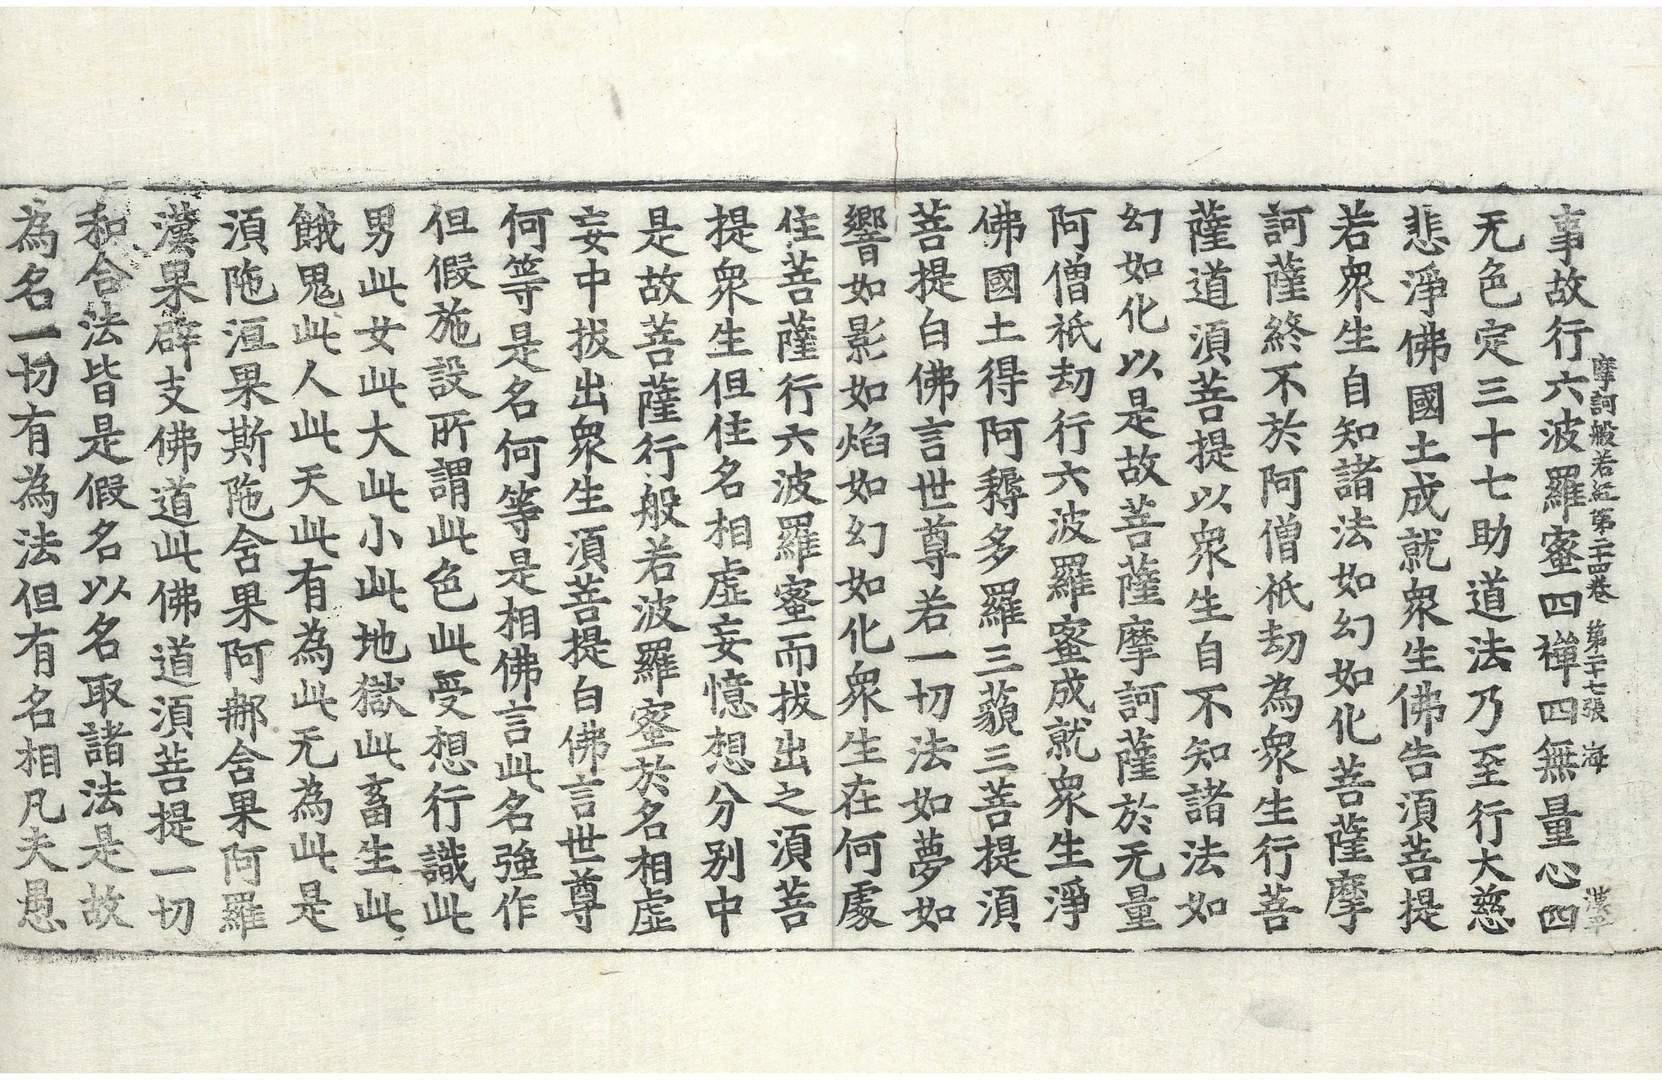 摩訶般若經第二十四卷 第二十七張 海
事故行六波羅蜜四禪四無量心四
无色定三十七助道法乃至行大慈
悲淨佛國土成就衆生佛告湏菩提
若衆生自知諸法如幻如化菩薩摩
訶薩終不於阿僧祇劫為衆生行菩
薩道湏菩提以衆生自不知諸法如
幻如化以是故菩薩摩訶薩於无量
阿僧祇劫行六波羅蜜成就衆生淨
佛國土得阿耨多羅三藐三菩提湏
菩提白佛言世尊若一切法如夢如
響如影如焰如幻如化衆生在何處
住菩薩行六波羅蜜而拔出之湏菩
提衆生但住名相虛妄憶想分別中
是故菩薩行般若波羅蜜於名相虛
妄中拔出衆生湏菩提白佛言世尊
何等是名何等是相佛言此名強作
但假施設所謂此色此受想行識此
男此女此大此小此地獄此畜生此
餓鬼此人此天此有為此无為此是
湏陁洹果斯陁含果阿那含果阿羅
漢果辟支佛道此佛道湏菩提一切
和合法皆是假名以名取諸法是故
為名一切有為法但有名相凡夫愚